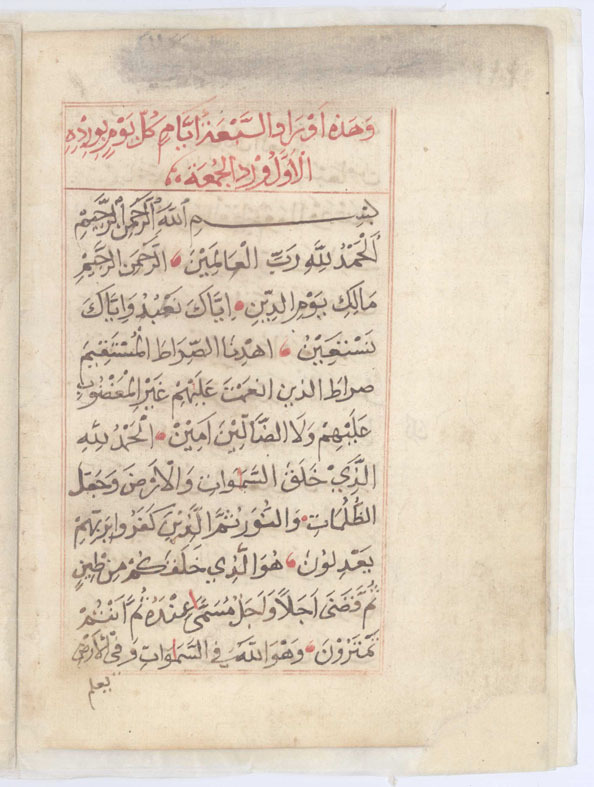 وَهَذِهِ اَوْرَادُ السَّبْعَةِ اَيَّامٍ كُلّ يَوْمٍ بِوِرْدِهِ
الْاَوَّلُ وِرْدُ الْجُمْعَةِ
بِسْــــــمِ اللَّهِ الرَّحْمٰنِ الرَّحِيْمِ
اَلْحَمْدُ لِلّٰهِ رَبِّ الْعَالَمِيْنَ الرَّحْمٰنِ الرَّحِيْمِ
مَالِكِ يَوْمِ الدِّيْنِ اِيَّاكَ نَعْبُدُ وَاِيَّاكَ
نَسْتَعِيْنُ اِهْدِنَا الصِّرَاطَ الْمُسْتَقِيْمَ
صِرَاطَ الَّذِيْنَ اَنْعَمْتَ عَلَيْهِمْ غَيْرِ الْمَغْضُوْبِ
عَلَيْهِمْ وَلَا الضَّالِّيْنَ اٰمِيْنَ اَلْحَمْدُ لِلّٰهِ
الَّذِيْ خَلَقَ السَّمٰوَاتِ وَالْاَرْضَ وَجَعَلَ
الظُّلُمَاتِ وَالنُّوْرَ ثُمَّ الَّذِيْنَ كَفَرُوا بِرَبِّهِمْ
يَعْدِلُوْنَ هُوَ الَّذِيْ خَلَقَكُمْ مِنْ طِيْنٍ
ثُمَّ قَضٰى اَجَلًا وَاَجَلٌ مُسَمًّى عِنْدَهُ ثُمَّ اَنْتُمْ
تَمْتَرُوْنَ وَهُوَ اللّٰهُ فِي السَّمٰوَاتِ وَفِي الْاَرْضِ
يعلم